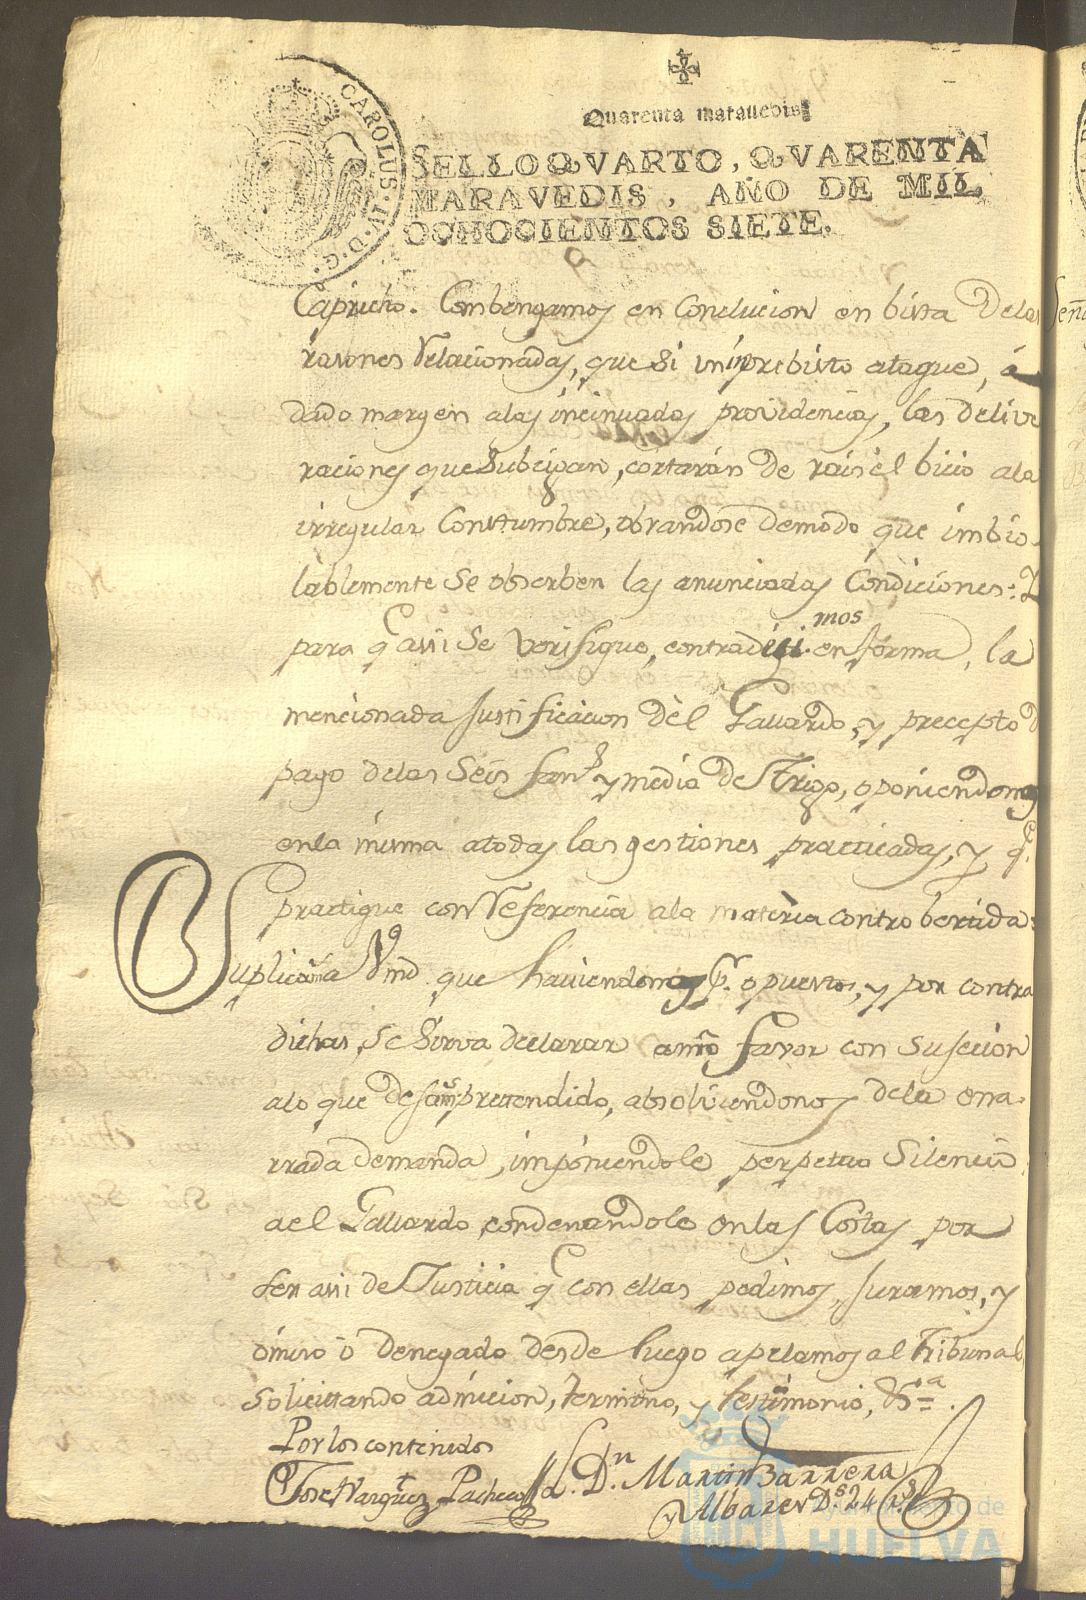 CAROLUS. IV. D. G.
Quarenta marauedis
SELLO QVARTO, QVARENTA
MARAVEDIS, AÑO DE MIL
OCHOCIENTOS SIETE.
Capricho. Combengamos en Conclucion en bista delas
rasones relacionadas, que si inprebisto ataque, á
dado margen alas incinuadas providencias, las delive
raciones que subcigan, cortarán de rais el bicio ala
irregular Constumbre, obrandose demodo que imbio
lablemente se obserben las anunciadas Condiciones: Y
para q assi se verifique, contradigimos en forma, la
mencionada Justificacion del Gallardo, y precepto d
pago delas Seis fan.s y media de Trigo, oponiendonos
enla misma atodas las gestiones practicadas, y q.e
practique con referencia ala materia controbertida:
Suplicamos a Vmd. que haviendonos p.r opuestos, y por contra
dichas, se Sirva declarar a nro favor con Suseción
alo que desamos pretendido, absolviendonos dela ena-
rrada demanda, imponiendole perpetuo Silencio
ael Gallardo, condenandole enlas Costas, por
ser assi de Justicia q con ellas pedimos, Juramos, y
omiso ó denegado desde luego apelamos al Tribunal,
Solicitando admicion, termino, y testimonio, &.a
Por los contenidos
Jose Vazquez Pacheco
D.n Martin Barrera
y Albarez D.s 24 r.s
Ayuntamiento de
HUELVA